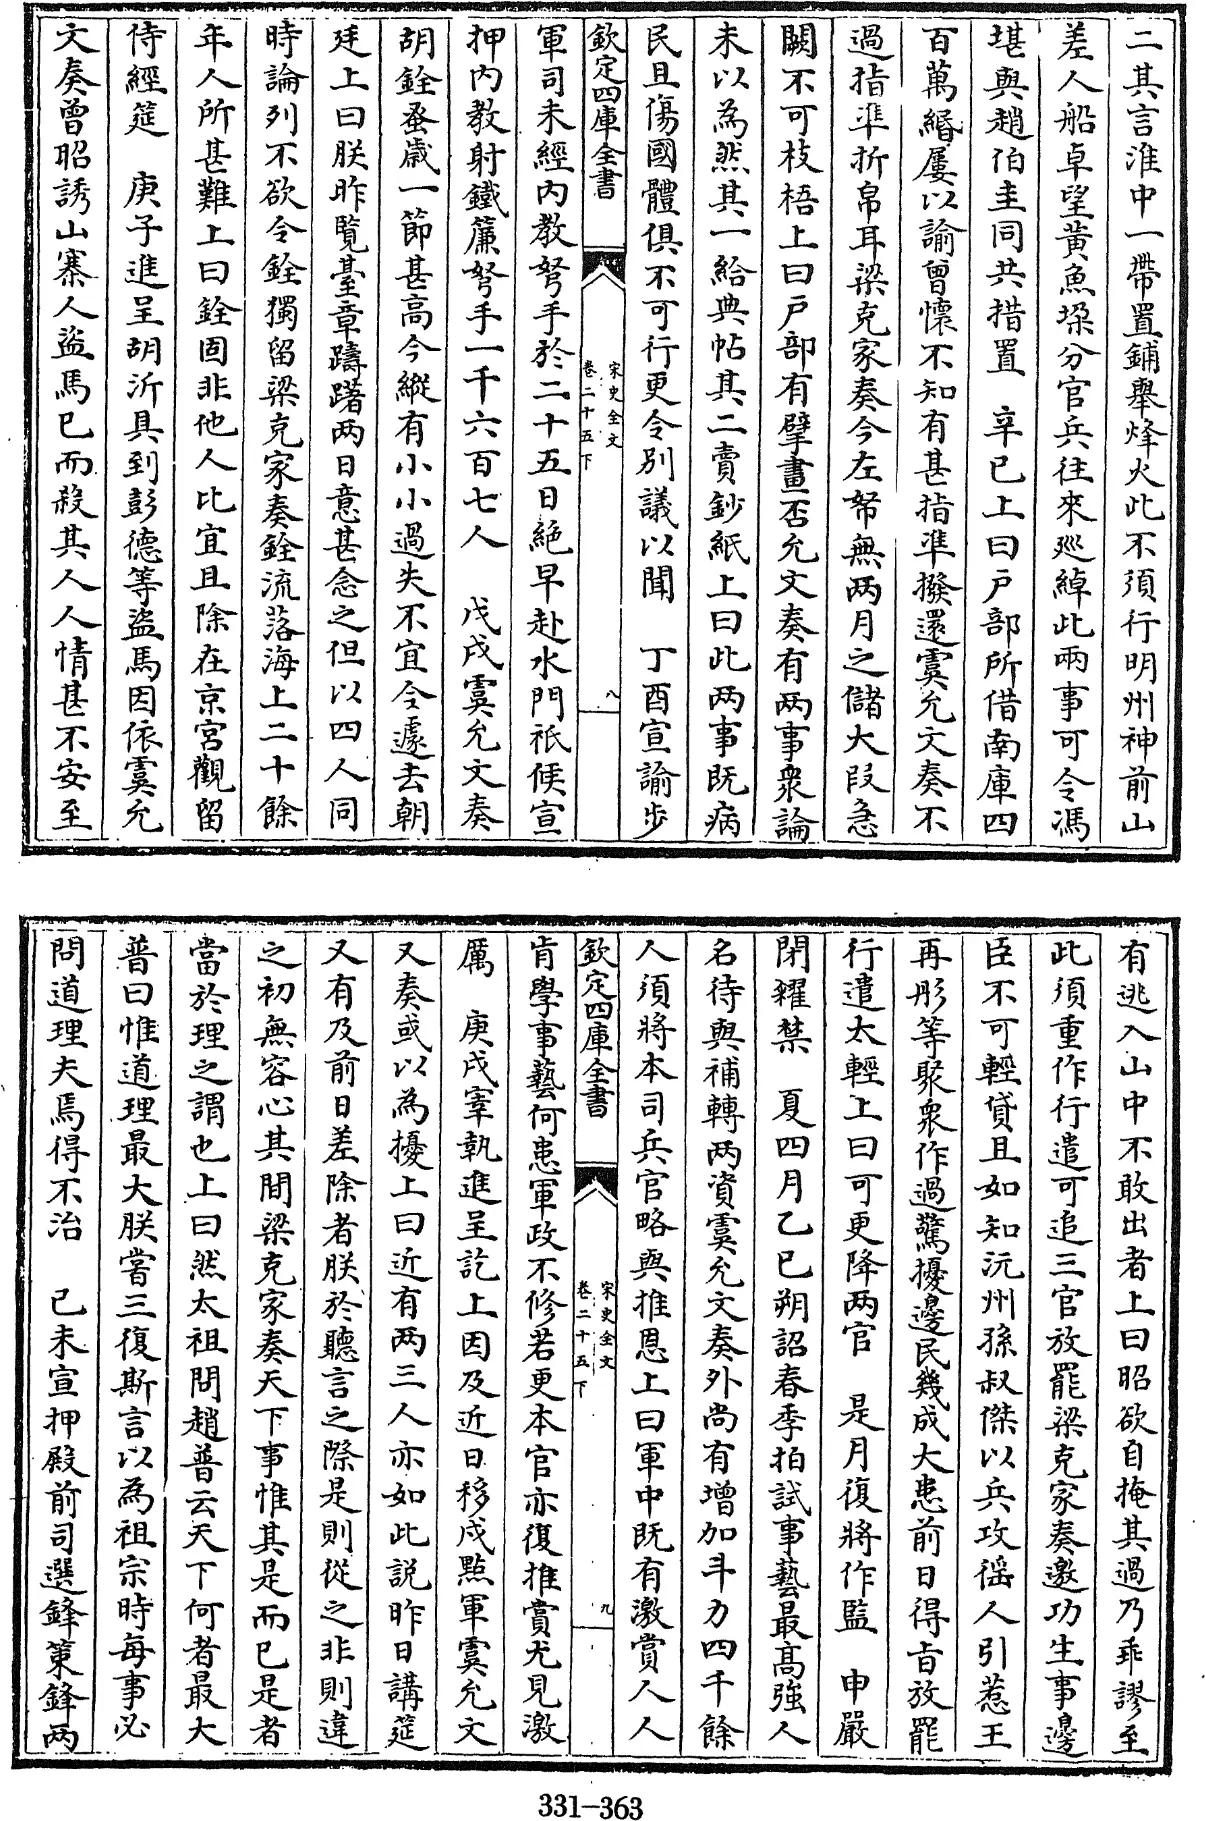 二其言淮中一帶置鋪舉烽火此不須行明州神前山
差人船卓望黄魚垜分官兵往來廵綽此兩事可令馮
堪與趙伯圭同共措置　辛巳上曰戸部所借南庫四
百萬緡屢以諭曾懷不知有甚指準撥還虞允文奏不
過指準折帛耳梁克家奏今左帑無两月之儲大段急
闕不可枝梧上曰戸部有擘畫否允文奏有两事衆論
未以為然其一給典帖其二賣鈔紙上曰此两事既病
民且傷國體俱不可行更令別議以聞　丁酉宣諭步
欽定四庫全書
宋史全文
卷二十五下
八
軍司未經內教弩手於二十五日絶早赴水門祇候宣
押内教射鐵簾弩手一千六百七人　戊戌虞允文奏
胡銓蚤歲一節甚高今縱有小小過失不宜令遽去朝
廷上曰朕昨覽臺章躊躇两日意甚念之但以四人同
時論列不欲令銓獨留梁克家奏銓流落海上二十餘
年人所甚難上曰銓固非他人比宜且除在京宮觀留
侍經筵　庚子進呈胡沂具到彭德等盜馬因依虞允
文奏曾昭誘山寨人盜馬已而殺其人人情甚不安至
有逃入山中不敢出者上曰昭欲自掩其過乃乖謬至
此須重作行遣可追三官放罷梁克家奏邀功生事邊
臣不可輕貸且如知沅州孫叔傑以兵攻徭人引惹王
再彤等聚衆作過驚擾邊民幾成大患前日得旨放罷
行遣太輕上曰可更降两官　是月復將作監　申嚴
閉糴禁　夏四月乙巳朔詔春季拍試事藝最高強人
名待與補轉两資虞允文奏外尚有增加斗力四千餘
人須將本司兵官略與推恩上曰軍中既有激賞人人
欽定四庫全書
宋史全文
卷二十五下
九
肯學事藝何患軍政不修若更本官亦復推賞尤見激
厲　庚戌宰執進呈訖上因及近日移戍㸃軍虞允文
又奏或以為擾上曰近有两三人亦如此説昨日講筵
又有及前日差除者朕於聽言之際是則從之非則違
之初無容心其間梁克家奏天下事惟其是而已是者
當於理之謂也上曰然太祖問趙普云天下何者最大
普曰惟道理最大朕嘗三復斯言以為祖宗時每事必
問道理夫焉得不治　己未宣押殿前司選鋒策鋒两
331-363